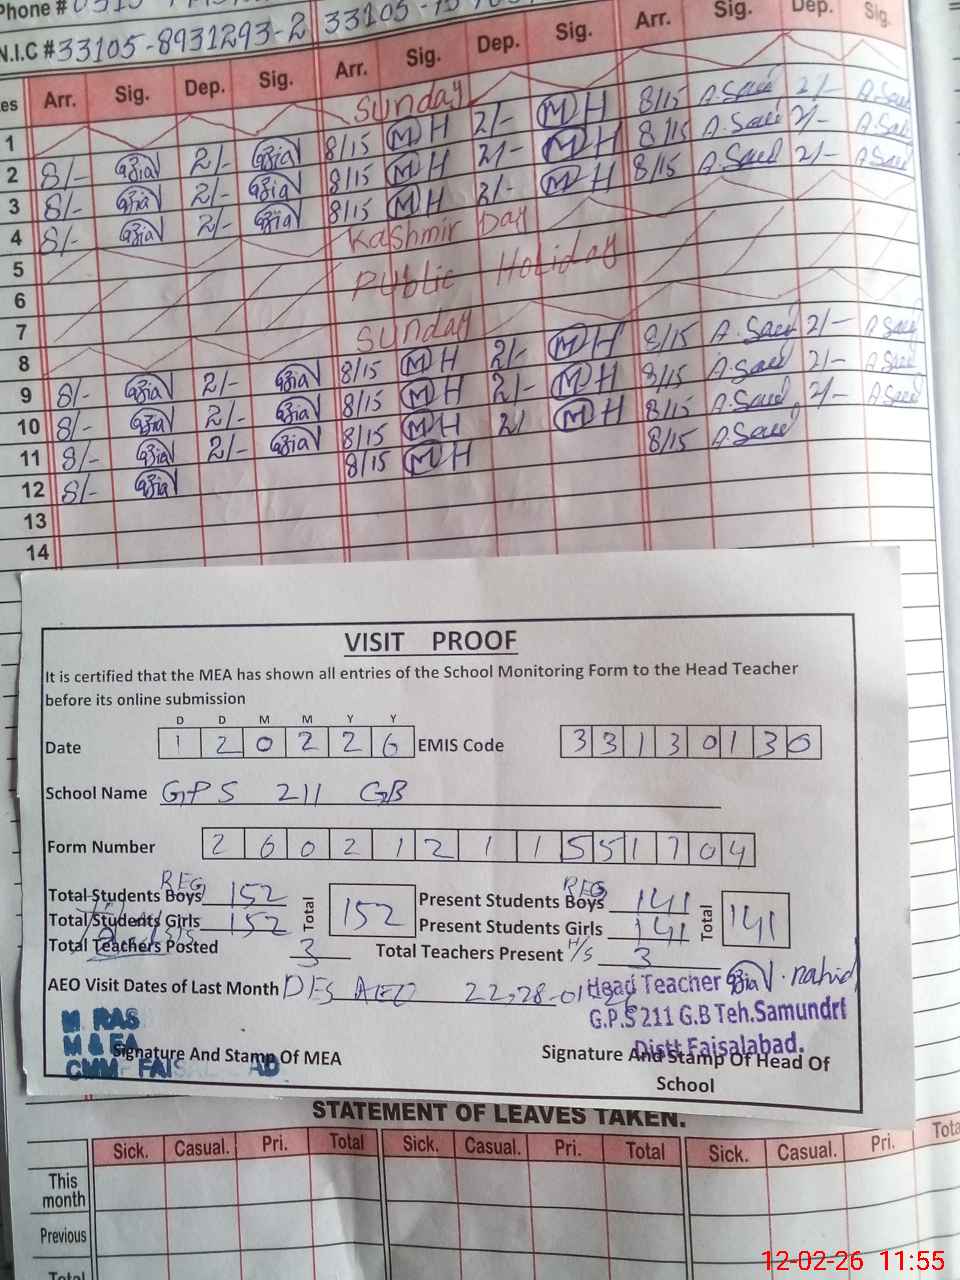 Phone #
N.I.C # 33105-8931293-2 33105-
Arr. Sig. Dep. Sig. Arr. Sig. Dep. Sig. Arr. Sig. Dep. Sig.
1 Sunday
2 8/- 2/- 8/15 M H 2/- M H 8/15 A.Saed 2/- A.Saed
3 8/- 2/- 8/15 M H 2/- M H 8/15 A.Saed 2/- A.Saed
4 8/- 2/- 8/15 M H 2/- M H 8/15 A.Saed 2/- A.Saed
5 Kashmir Day
6 Public Holiday
7
8 Sunday
9 8/- 2/- 8/15 M H 2/- M H 8/15 A.Saed 2/- A.Saed
10 8/- 2/- 8/15 M H 2/- M H 8/15 A.Saed 2/- A.Saed
11 8/- 2/- 8/15 M H 2/ M H 8/15 A.Saed 2/- A.Saed
12 8/- 8/15 M H 8/15 A.Saed
13
14
VISIT PROOF
It is certified that the MEA has shown all entries of the School Monitoring Form to the Head Teacher
before its online submission
D D M M Y Y
Date 1 2 0 2 2 6 EMIS Code 3 3 1 3 0 1 3 0
School Name GPS 211 GB
Form Number 2 6 0 2 1 2 1 1 5 5 1 7 0 4
REG REG
Total Students Boys 152 Total 152 Present Students Boys 141 Total 141
Total Students Girls 152 Present Students Girls 141
Total Teachers Posted 3 Total Teachers Present H/S 3
AEO Visit Dates of Last Month DES AEO 22,28-01- Head Teacher Nahid
G.P.S 211 G.B Teh.Samundri
Distt Faisalabad.
M RAS
M & EA
CMM FAISAL AD
Signature And Stamp Of MEA Signature And Stamp Of Head Of
School
STATEMENT OF LEAVES TAKEN.
Sick. Casual. Pri. Total Sick. Casual. Pri. Total Sick. Casual. Pri. Total
This
month
Previous
Total
12-02-26 11:55